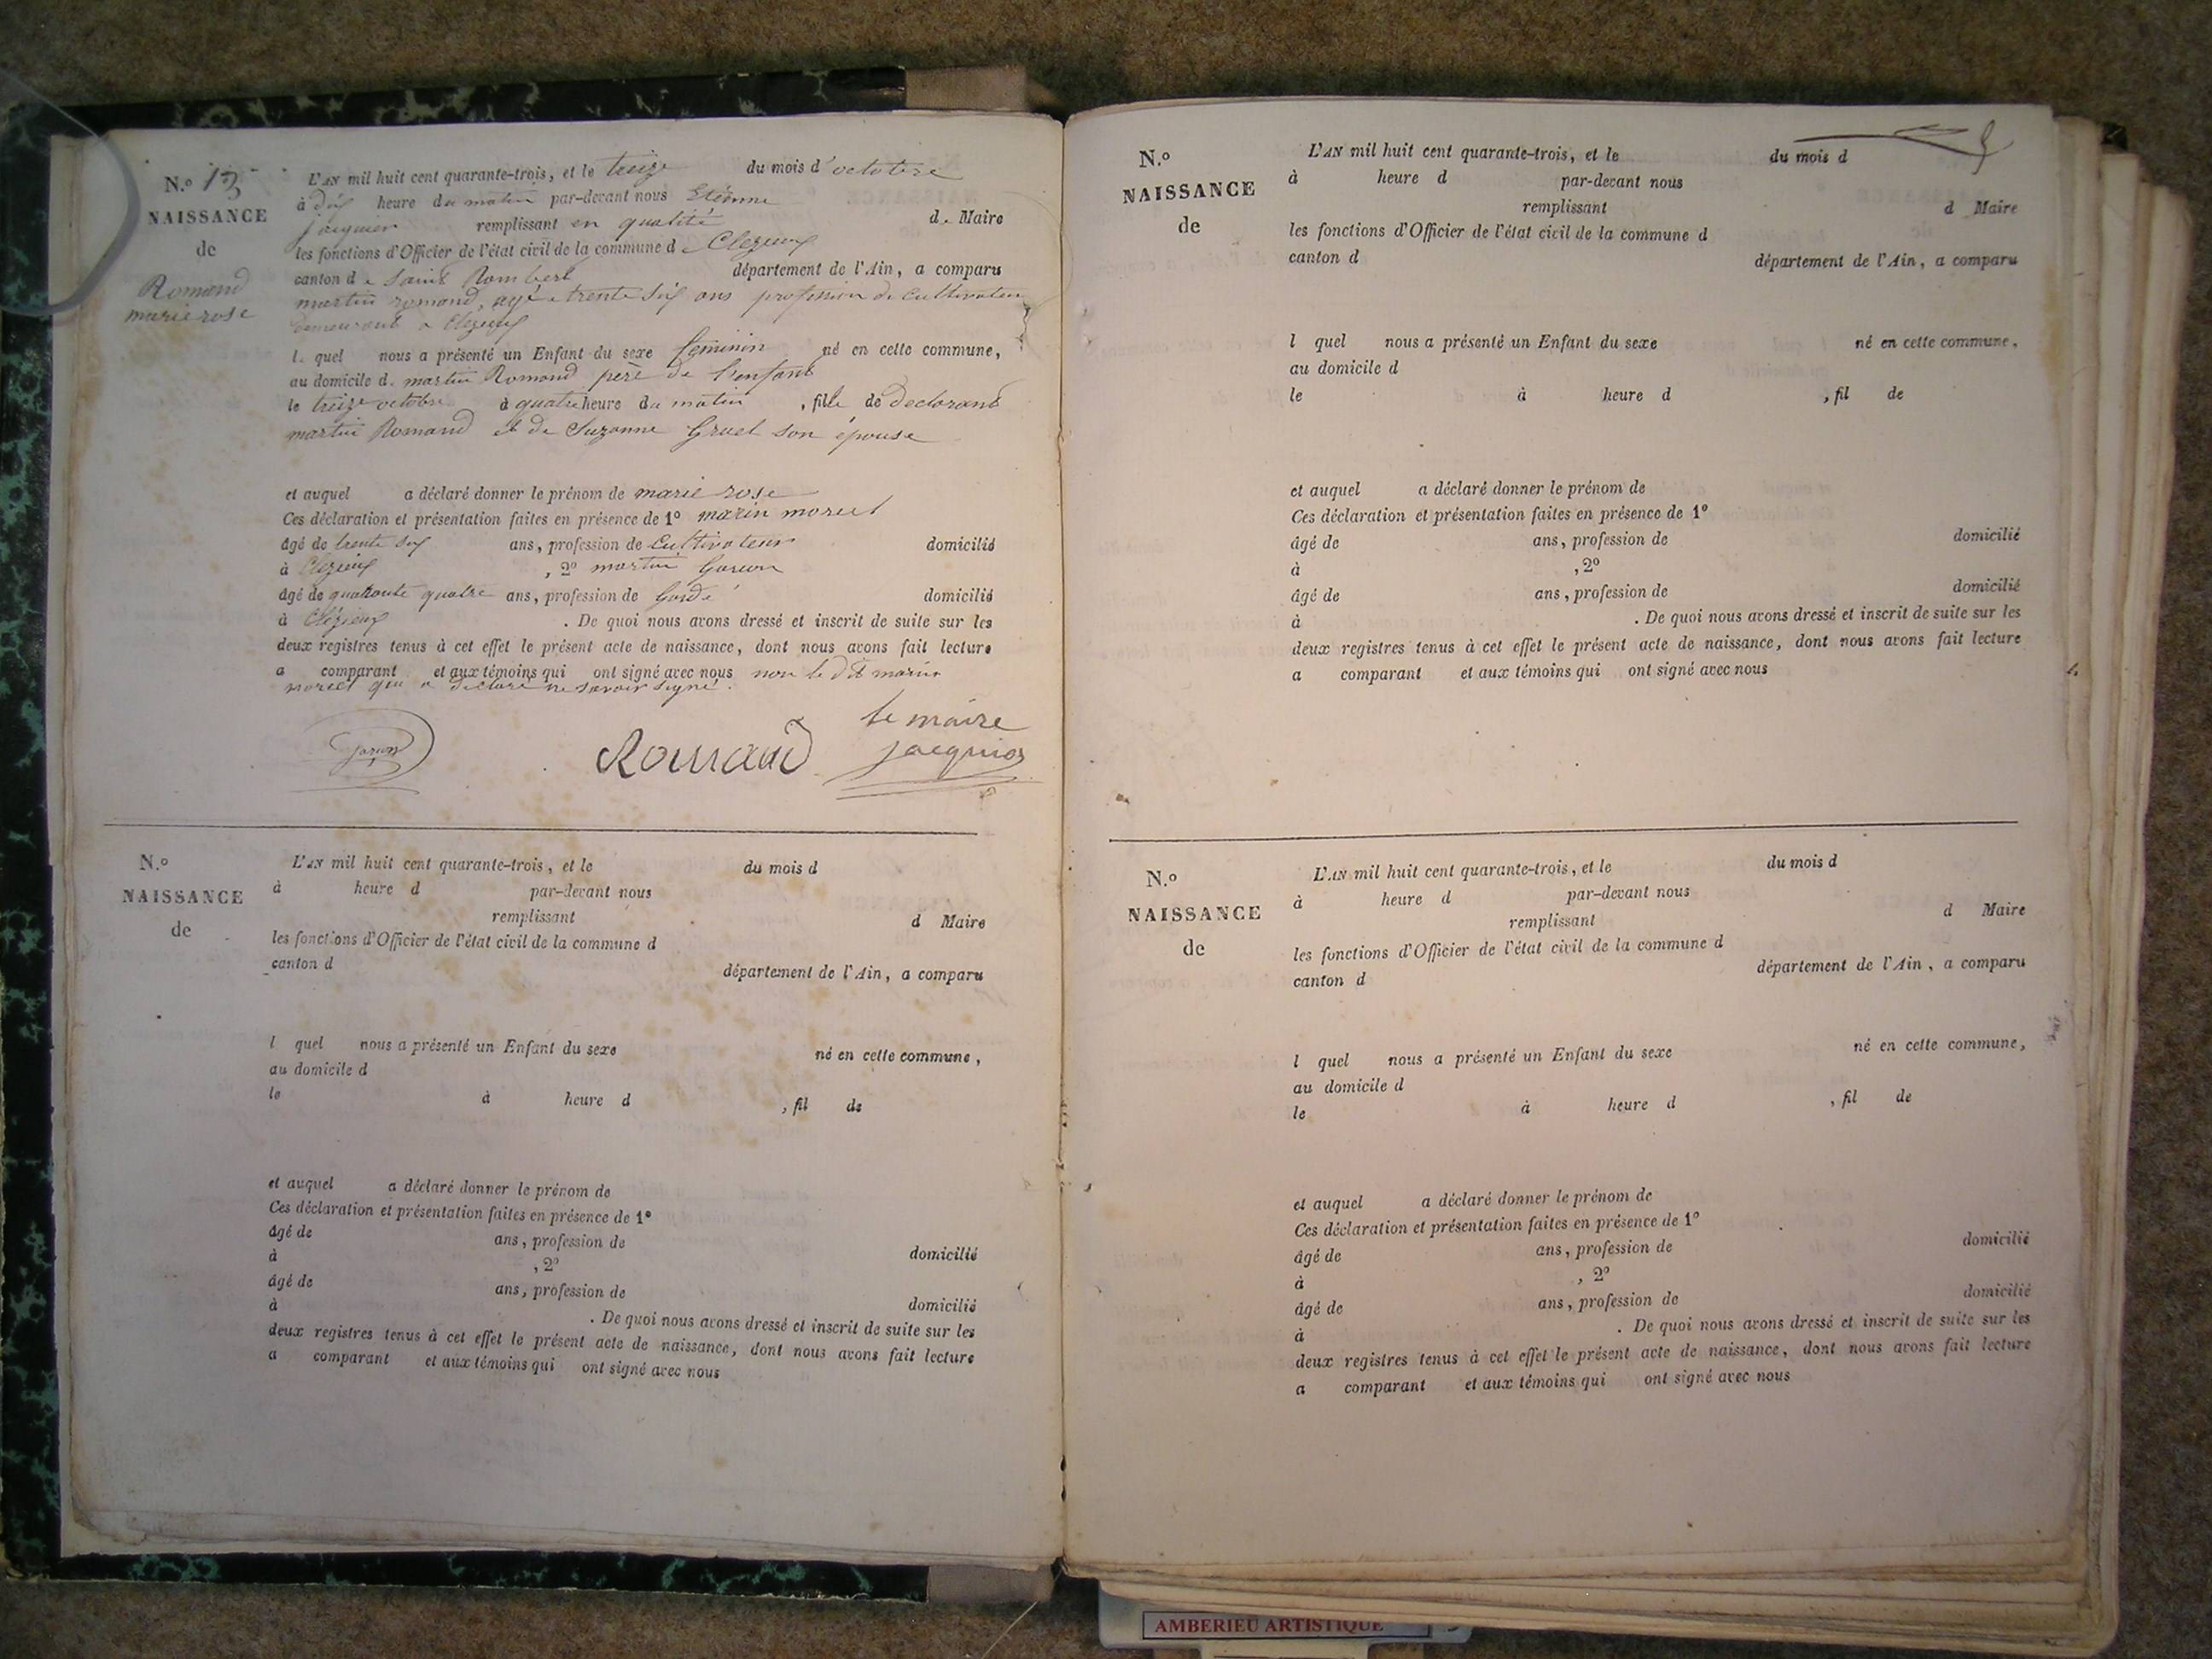 N.º 13
NAISSANCE
de
Romand
marie rose
L'AN mil huit cent quarante-trois, et le treize du mois d'octobre
à dix heure du matin par-devant nous Etienne
jacquier remplissant en qualité de Maire
les fonctions d'Officier de l'état civil de la commune de Clezieux
canton de Saint Rambert département de l'Ain, a comparu
martin romand, agé de trente six ans profession de cultivateur
demeurant a Clezieux
l. quel nous a présenté un Enfant du sexe feminin né en cette commune,
au domicile d. martin Romand père de l'enfant
le treize octobre à quatre heure du matin, fille de declarant
martin Romand et de Suzanne Gruel son épouse
et auquel a déclaré donner le prénom de marie rose
Ces déclaration et présentation faites en présence de 1º marin morel
âgé de trente six ans, profession de Cultivateur domicilié
à Clezieux, 2º martin
âgé de quatrante quatre ans, profession de Garde domicilié
à Clézieux. De quoi nous avons dressé et inscrit de suite sur les
deux registres tenus à cet effet le présent acte de naissance, dont nous avons fait lecture
a comparant et aux témoins qui ont signé avec nous non le dit marin
morel qui a déclaré ne savoir signé.
le maire
Romand jacquier
N.º
NAISSANCE
de
L'AN mil huit cent quarante-trois, et le du mois d
à heure d par-devant nous
remplissant d Maire
les fonctions d'Officier de l'état civil de la commune d
canton d département de l'Ain, a comparu
l quel nous a présenté un Enfant du sexe né en cette commune,
au domicile d
le à heure d , fil de
et auquel a déclaré donner le prénom de
Ces déclaration et présentation faites en présence de 1º
âgé de ans, profession de domicilié
à , 2º
âgé de ans, profession de domicilié
à . De quoi nous avons dressé et inscrit de suite sur les
deux registres tenus à cet effet le présent acte de naissance, dont nous avons fait lecture
a comparant et aux témoins qui ont signé avec nous
N.º
NAISSANCE
de
L'AN mil huit cent quarante-trois, et le du mois d
à heure d par-devant nous
remplissant d Maire
les fonctions d'Officier de l'état civil de la commune d
canton d département de l'Ain, a comparu
l quel nous a présenté un Enfant du sexe né en cette commune,
au domicile d
le à heure d , fil de
et auquel a déclaré donner le prénom de
Ces déclaration et présentation faites en présence de 1º
âgé de ans, profession de domicilié
à , 2º
âgé de ans, profession de domicilié
à . De quoi nous avons dressé et inscrit de suite sur les
deux registres tenus à cet effet le présent acte de naissance, dont nous avons fait lecture
a comparant et aux témoins qui ont signé avec nous
N.º
NAISSANCE
de
L'AN mil huit cent quarante-trois, et le du mois d
à heure d par-devant nous
remplissant d Maire
les fonctions d'Officier de l'état civil de la commune d
canton d département de l'Ain, a comparu
l quel nous a présenté un Enfant du sexe né en cette commune,
au domicile d
le à heure d , fil de
et auquel a déclaré donner le prénom de
Ces déclaration et présentation faites en présence de 1º
âgé de ans, profession de domicilié
à , 2º
âgé de ans, profession de domicilié
à . De quoi nous avons dressé et inscrit de suite sur les
deux registres tenus à cet effet le présent acte de naissance, dont nous avons fait lecture
a comparant et aux témoins qui ont signé avec nous
AMBERIEU ARTISTIQUE